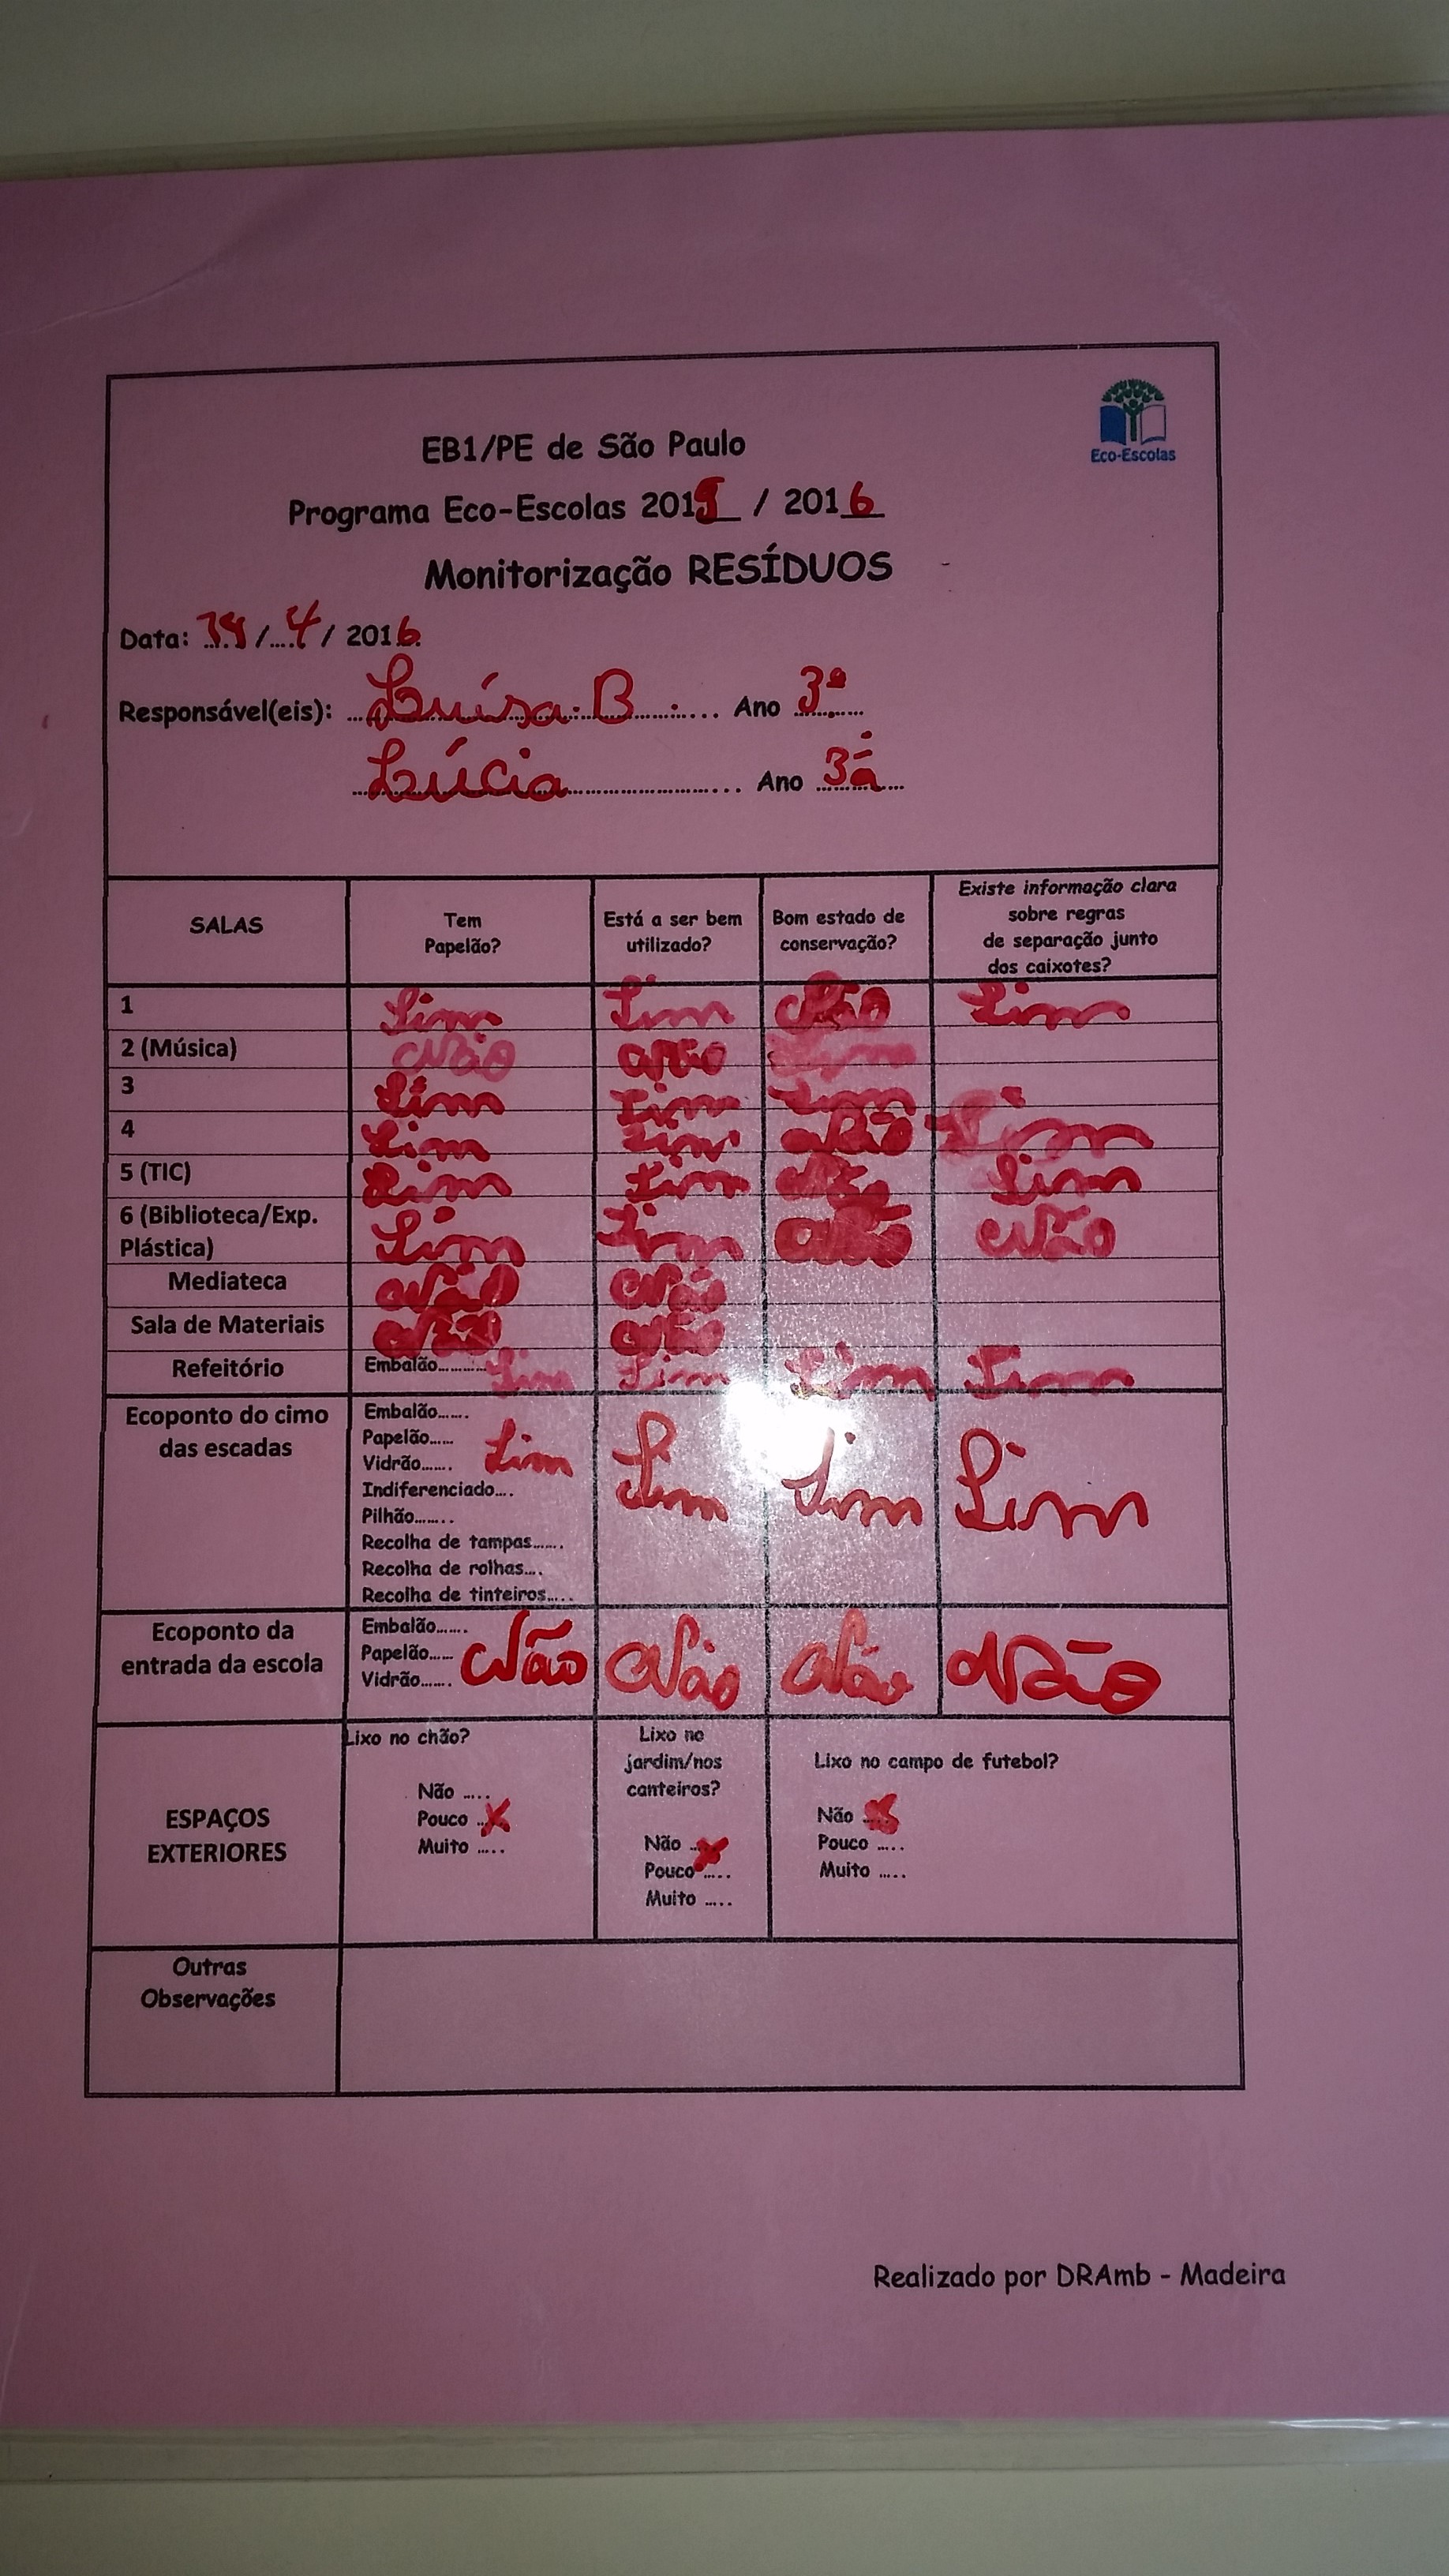 Eco-Escolas
EB1/PE de São Paulo
Programa Eco-Escolas 2015 / 2016
Monitorização RESÍDUOS
Data: / 4 / 2016
Responsável(eis): Luísa B Ano 3º
Lúcia Ano 3º
SALAS Tem Papelão? Está a ser bem utilizado? Bom estado de conservação? Existe informação clara sobre regras de separação junto dos caixotes?
1 Sim Sim Não Sim
2 (Música) Não Não Sim
3 Sim Sim Sim
4 Sim Sim Não Sim
5 (TIC) Sim Sim Não Sim
6 (Biblioteca/Exp. Plástica) Sim Sim Não Não
Mediateca Não Não
Sala de Materiais Não Não
Refeitório Embalão......... Sim Sim Sim Sim
Ecoponto do cimo das escadas
Embalão......
Papelão.....
Vidrão....... Sim Sim Sim Sim
Indiferenciado....
Pilhão.......
Recolha de tampas......
Recolha de rolhas....
Recolha de tinteiros.....
Ecoponto da entrada da escola
Embalão......
Papelão..... Não Não Não Não
Vidrão.......
ESPAÇOS EXTERIORES
Lixo no chão?
Não .....
Pouco ..X
Muito .....
Lixo no jardim/nos canteiros?
Não ..X
Pouco .....
Muito .....
Lixo no campo de futebol?
Não ..X
Pouco .....
Muito .....
Outras Observações
Realizado por DRAmb - Madeira